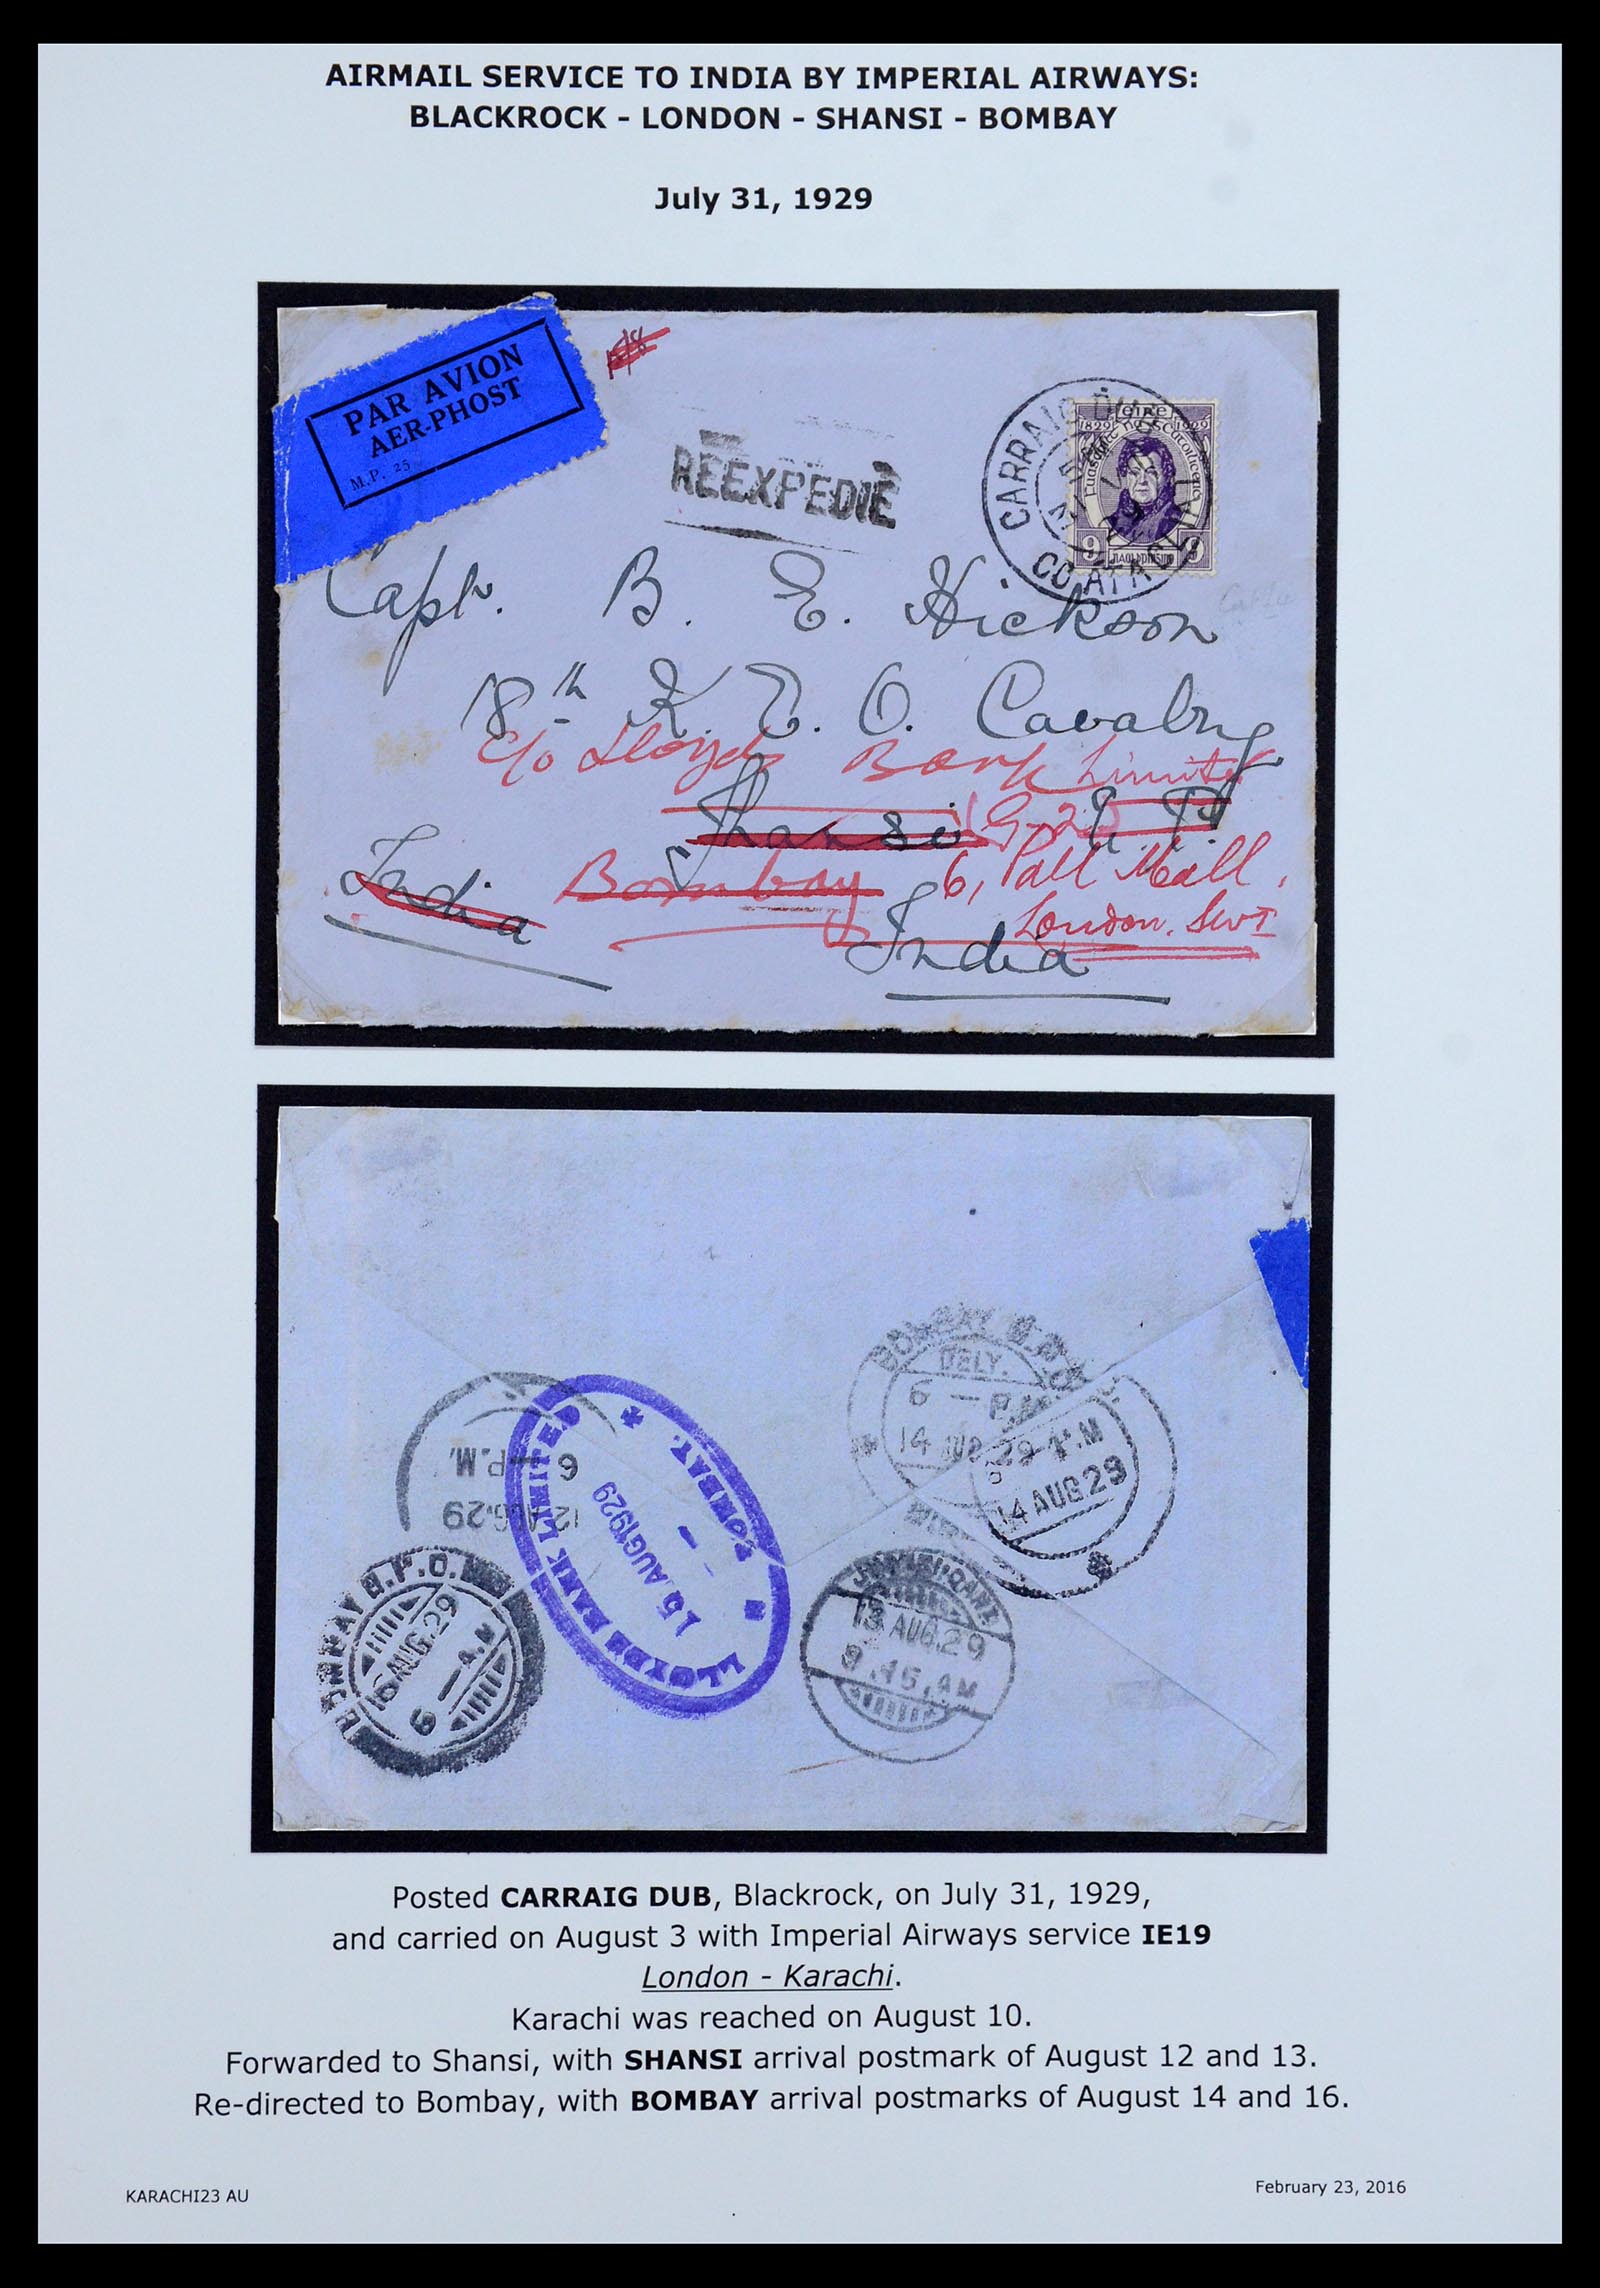 AIRMAIL SERVICE TO INDIA BY IMPERIAL AIRWAYS:
BLACKROCK - LONDON - SHANSI - BOMBAY
July 31, 1929
PAR AVION
AER-PHOST
M.P. 25
REEXPEDIÉ
CARRAIG DUB
CO. ATA CLIAT
éire
1829 1929
9 9
Capt. B. E. Hickson
18th K. E. O. Cavalry
c/o Lloyds Bank Limited
Shansi U. P.
G-2
India Bombay 6, Pall Mall,
London. SW1
India
BOMBAY G.P.O.
DELY.
6 - P.M
14 AUG 29
P.M
14 AUG 29
6 - P.M.
12 AUG. 29
LLOYDS BANK LIMITED
15 AUG 1929
BOMBAY.
BOMBAY G.P.O.
16 AUG. 29
6 - A.M
13 AUG. 29
9.15. AM
Posted CARRAIG DUB, Blackrock, on July 31, 1929,
and carried on August 3 with Imperial Airways service IE19
London - Karachi.
Karachi was reached on August 10.
Forwarded to Shansi, with SHANSI arrival postmark of August 12 and 13.
Re-directed to Bombay, with BOMBAY arrival postmarks of August 14 and 16.
KARACHI23 AU
February 23, 2016